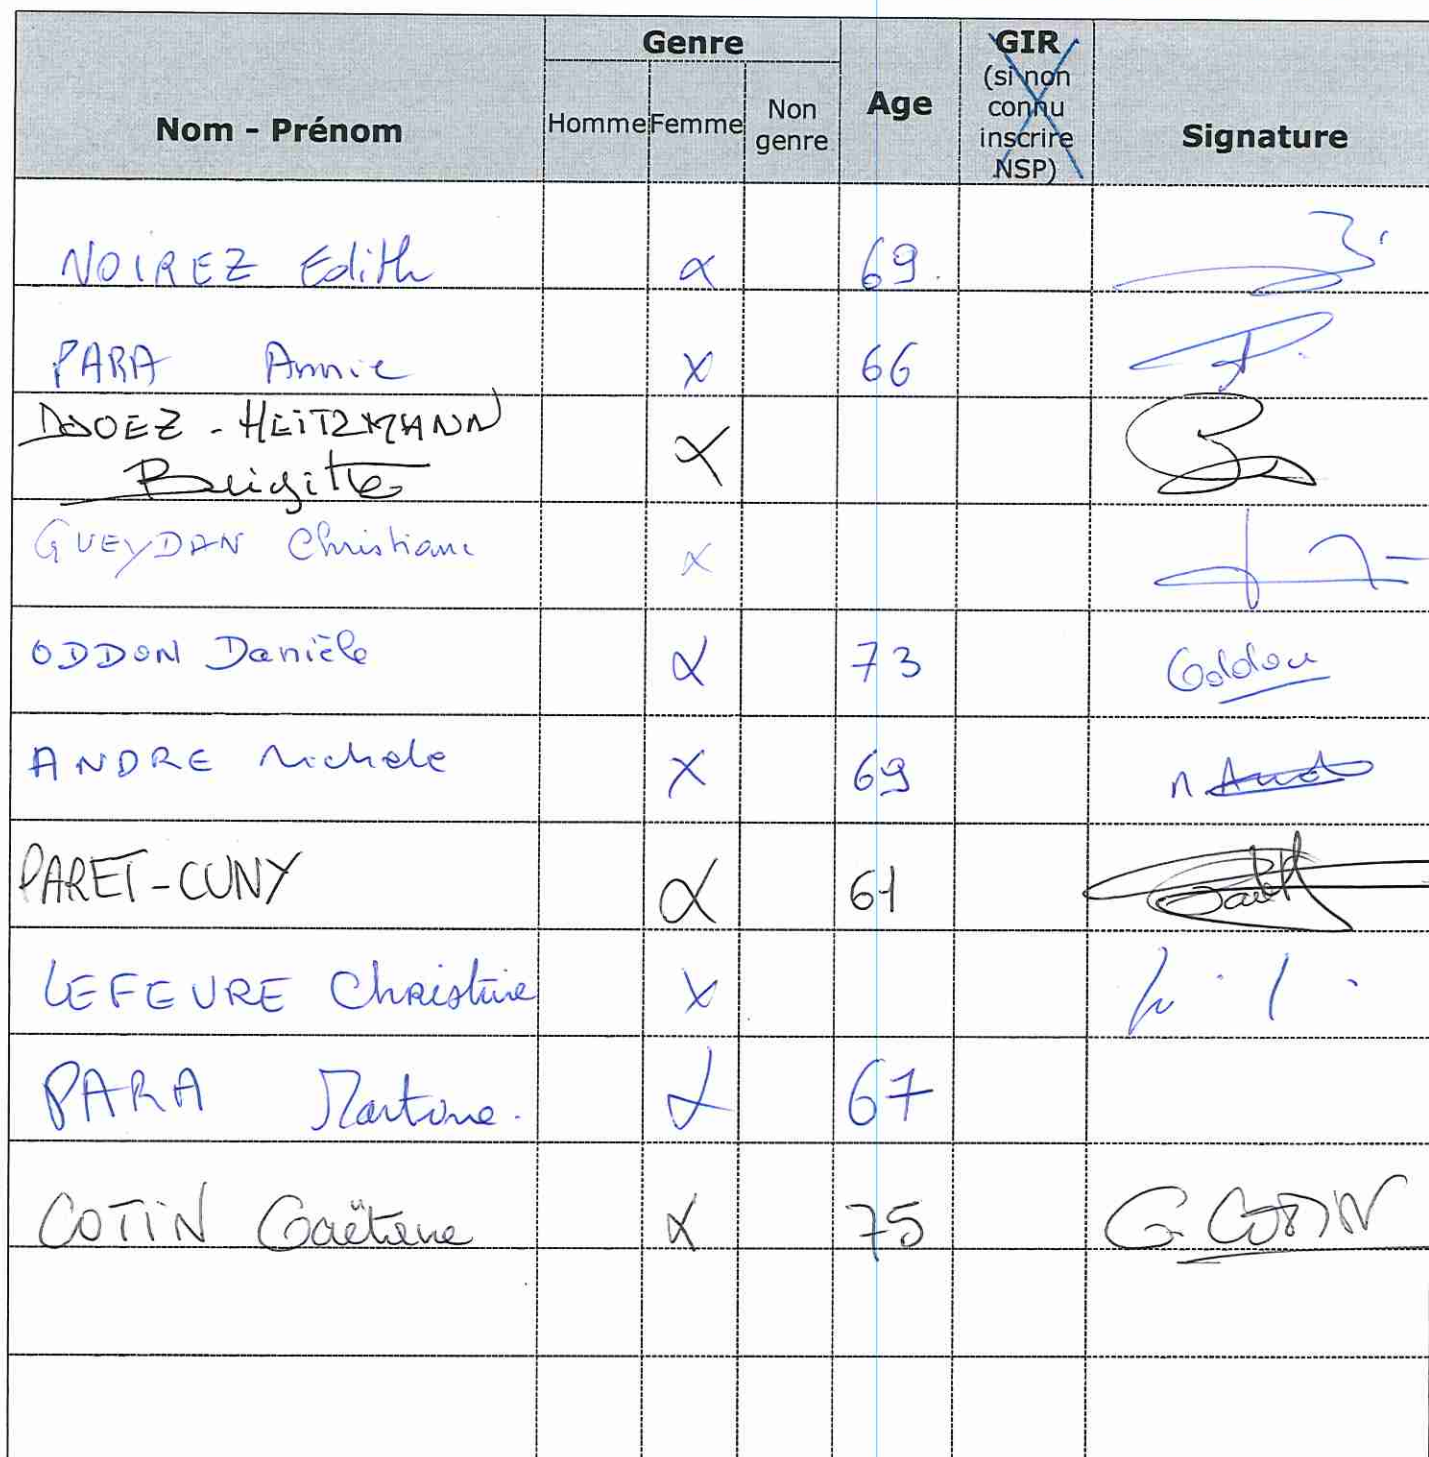 Nom - Prénom Genre Age GIR Signature
Homme Femme Non genre (si non connu inscrire NSP)
NOIREZ Edith x 69
PARA Annie x 66
DOOEZ - HEITZMANN
Brigitte x
GUEYDAN Christiane x
ODDON Danièle x 73 Goddon
ANDRE Michele x 69
PARET-CUNY x 61
LEFEVRE Christine x
PARA Martine. x 67
COTIN Gaëtane x 75 G. COTIN